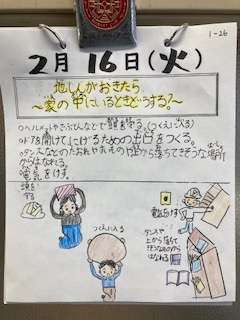 1-26
2月16日(火)
地しんがおきたら
〜家の中にいるときどうする?〜
○ヘルメットやざぶとんなどで頭を守る。(つくえに入る)
○ドアを開けてにげるための出口をつくる。
○タンスなどのたおれやすいものや上から落ちてきそうな場所
からはなれる。
電気をけす。
頭を
守る
つくえに入る
電気をけす
タンスや
上から落ちて
きそうなものから
はなれる